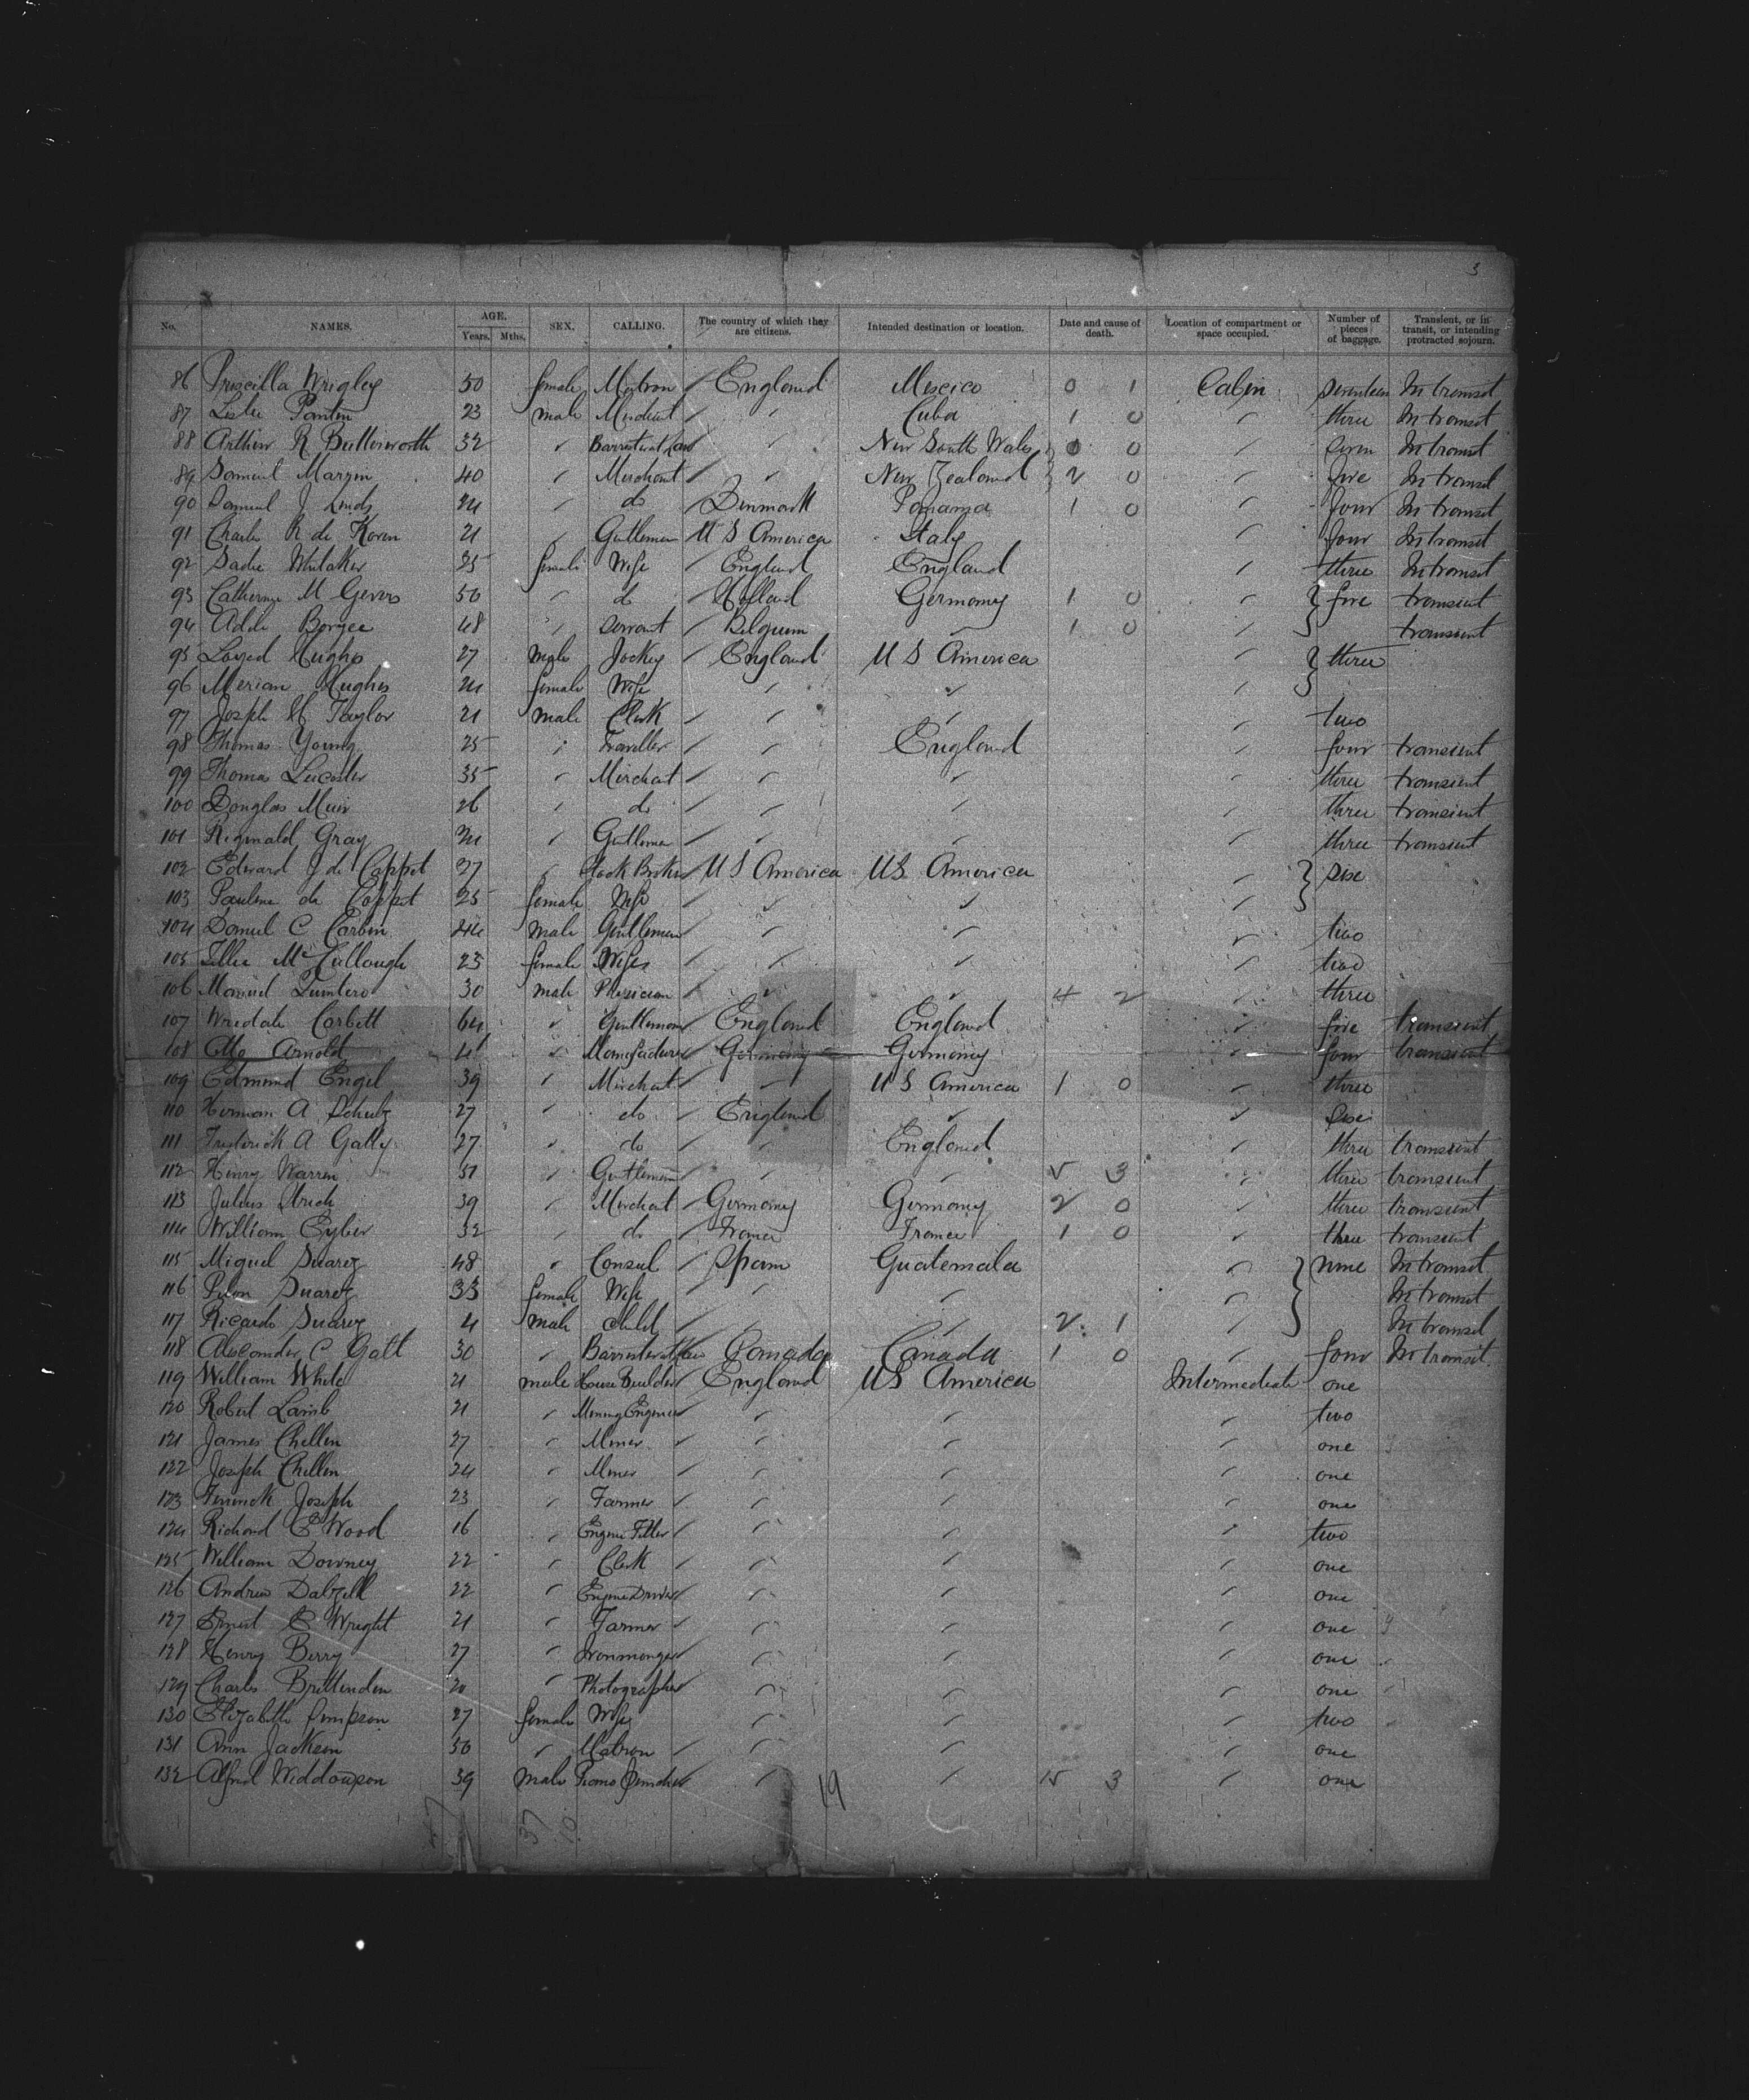 3
No. NAMES. AGE. Years. Mths. SEX. CALLING. The country of which they are citizens. Intended destination or location. Date and cause of death. Location of compartment or space occupied. Number of pieces of baggage. Transient, or in transit, or intending protracted sojourn.
86 Priscilla Wrigley 50 female Matron England Mexico 0 1 Cabin seventeen In transit
87 Leslie Panton 23 male Merchant Cuba 1 0 three In transit
88 Arthur R Butterworth 32 Barrister at Law New South Wales 0 0 seven In transit
89 Samuel 40 Merchant New Zealand 2 0 five In transit
90 Samuel J 24 do Denmark Panama 1 0 four In transit
91 Charles R de Koven 21 Gentleman U S America Italy four In transit
92 Sadie Whitaker 25 female Wife England England three In transit
93 Catherine M Gevers 50 do Holland Germany 1 0 five transient
94 Adele 48 servant Belgium 1 0 transient
95 Hughes 27 male Jockey England U S America three
96 Merian Hughes 24 female Wife
97 Joseph H Taylor 21 male Clerk two
98 Thomas Young 25 Traveller England four transient
99 Thomas 35 Merchant three transient
100 Douglas Muir 26 do three transient
101 Reginald Gray 24 Gentleman three transient
102 Edward J de Coppet 37 Stock Broker U S America US America six
103 Pauline de Coppet 25 female Wife
104 Daniel C Corbin 44 male Gentleman two
105 Tillie McCullough 23 female Wife two
106 Manuel Quintero 30 male Physician 4 2 three
107 Corbett 64 Gentleman England England five transient
108 Otto Arnold 41 Manufacturer Germany Germany four transient
109 Edmund Engel 39 Merchant U S America 1 0 three
110 Herman A Schulz 27 do England six
111 Frederick A Gally 27 do England three transient
112 Henry Warren 51 Gentleman 5 3 three transient
113 Julius 39 Merchant Germany Germany 2 0 three transient
114 William 32 do France France 1 0 three transient
115 Miguel Suarez 48 Consul Spain Guatemala nine In transit
116 Suarez 33 female Wife In transit
117 Ricardo Suarez 4 male child 2 1 In transit
118 Alexander C Galt 30 Barrister at Law Canada Canada 1 0 four In transit
119 William White 21 male House Builder England US America Intermediate one
120 Robert Lamb 21 Mining Engineer two
121 James Chellen 27 Miner one
122 Joseph Chellen 24 Miner one
123 Joseph 23 Farmer one
124 Richard E Wood 16 Engine Fitter two
125 William Downey 22 Clerk one
126 Andrew Dalzell 22 Engine Driver one
127 Ernest E Wright 21 Farmer one
128 Henry Berry 27 Ironmonger one
129 Charles Bruttenden 20 Photographer one
130 Elizabeth Simpson 27 female Wife two
131 Ann Jackson 50 Matron one
132 Alfred Widdowson 39 male Piano 15 3 one
19
37 10